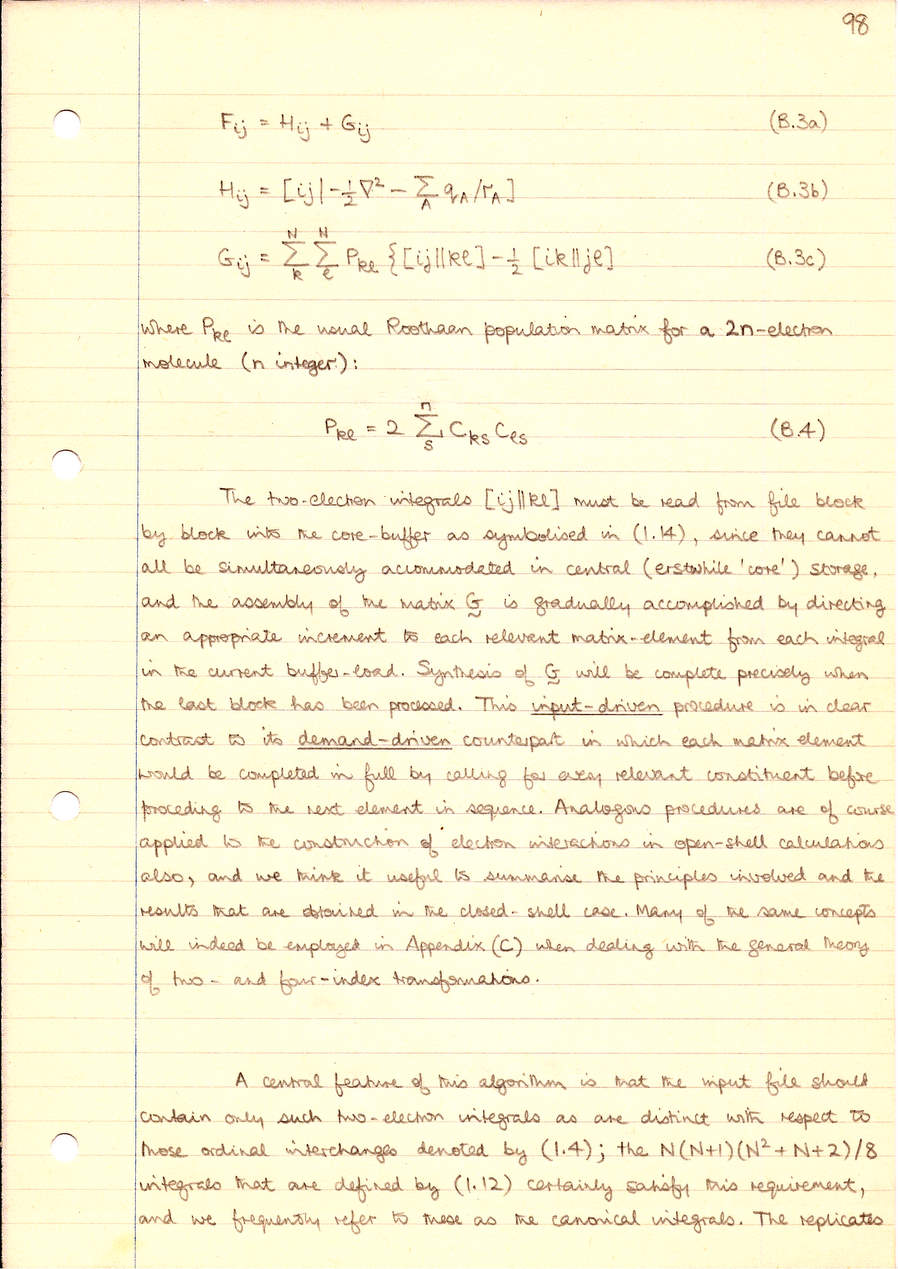 98
F_ij = H_ij + G_ij (B.3a)
H_ij = [ij|-½∇² - Σ_A q_A/r_A] (B.3b)
G_ij = Σ_k^N Σ_ℓ^N P_kℓ {[ij||kℓ] - ½ [ik||jℓ] (B.3c)
where P_kℓ is the usual Roothaan population matrix for a 2n-electron
molecule (n integer):
P_kℓ = 2 Σ_s^n C_ks C_ℓs (B.4)
The two-electron integrals [ij||kℓ] must be read from file block
by block into the core-buffer as symbolised in (1.14), since they cannot
all be simultaneously accommodated in central (erstwhile 'core') storage,
and the assembly of the matrix G is gradually accomplished by directing
an appropriate increment to each relevant matrix-element from each integral
in the current buffer-load. Synthesis of G will be complete precisely when
the last block has been processed. This input-driven procedure is in clear
contrast to its demand-driven counterpart in which each matrix element
would be completed in full by calling for every relevant constituent before
proceding to the next element in sequence. Analogous procedures are of course
applied to the construction of electron interactions in open-shell calculations
also, and we think it useful to summarise the principles involved and the
results that are obtained in the closed-shell case. Many of the same concepts
will indeed be employed in Appendix (C) when dealing with the general theory
of two- and four-index transformations.
A central feature of this algorithm is that the input file should
contain only such two-electron integrals as are distinct with respect to
those ordinal interchanges denoted by (1.4); the N(N+1)(N²+N+2)/8
integrals that are defined by (1.12) certainly satisfy this requirement,
and we frequently refer to these as the canonical integrals. The replicates